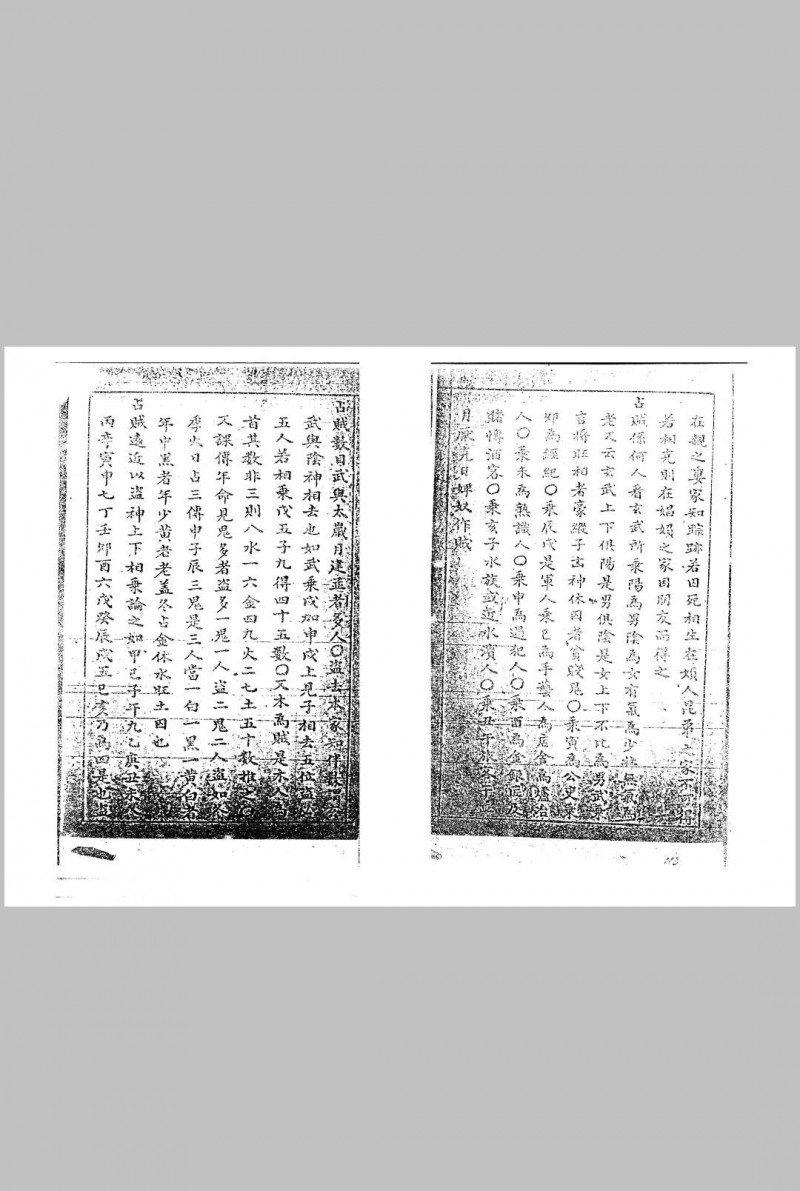 在親之妻家知踪跡若囚死相生在煩人昆弟之家不可得
若相克則在娼娼之家因朋友而得之
占賊係何人看玄武所乘陽為男陰為女有氣為少壯無氣為
老又云玄武上下俱陽是男俱陰是女上下不比為男武乘
吉將旺相者豪縱子玄神休囚者貧賤鬼〇乘寅為公吏乘
卯為經紀〇乘辰戌是軍人乘巳為手藝人為店舍為爐冶
人〇乘未為熟識人〇乘申為過犯人〇乘酉為金銀匠及
賭博酒客〇乘亥子水族或近水濱人〇乘丑
月厭克日婢奴作賊
占賊數目武與太歲月建並者多人〇盜去本家
武與陰神相去也如武乘戌加申戌上見子相去五位盜
五人若相乘戊五子九得四十五數〇又木為賊是木人
首其數非三則八水一六金四九火二七土五十数推之〇
又課傳年命見鬼多者盜多一鬼一人盜二鬼二人盜如冬
季火日占三傳申子辰三鬼是三人當一白一黑一黃白者
年中黑者年少黃者老蓋冬占金休水旺土囚也
占賊遠近以盜神上下相乘論之如甲己子午九乙庚丑未八
丙辛寅申七丁壬卯酉六戊癸辰戌五巳亥乃為四是也盜
113